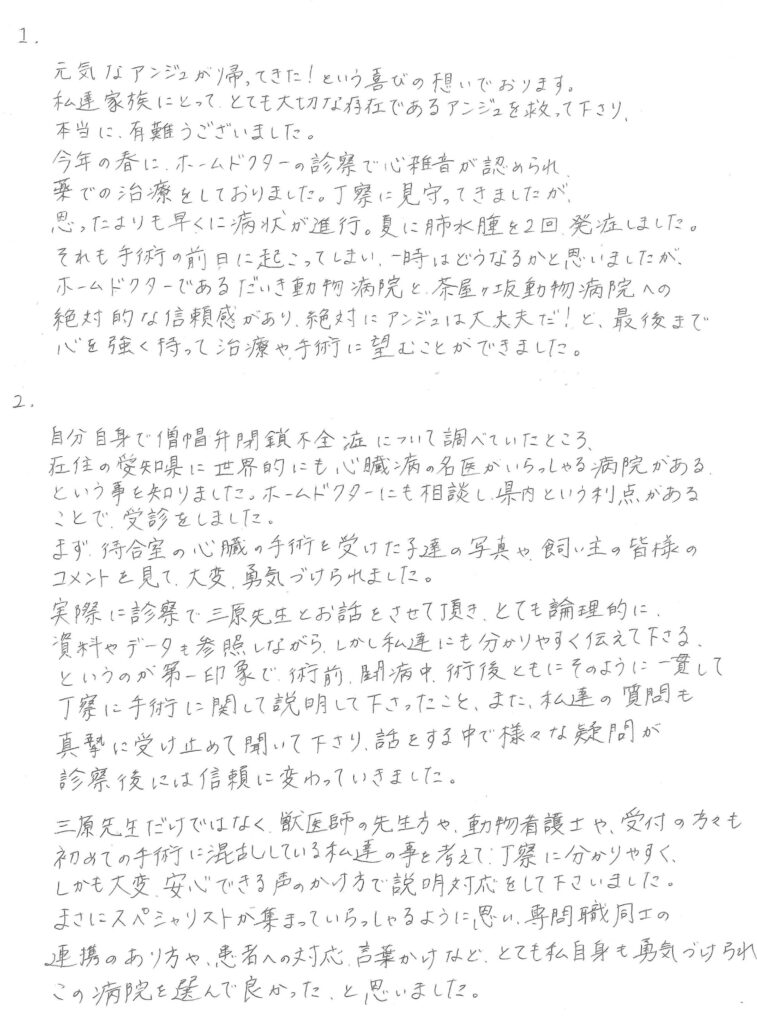 1.
元気なアンジュが帰ってきた！という喜びの想いでおります。
私達家族にとって、とても大切な存在であるアンジュを救って下さり、
本当に、有難うございました。
今年の春に、ホームドクターの診察で心雑音が認められ、
薬での治療をしておりました。丁察に見守ってきましたが、
思ったよりも早くに病状が進行。夏に肺水腫を2回、発症しました。
それも手術の前日に起こってしまい、一時はどうなるかと思いましたが、
ホームドクターであるだいき動物病院と、茶屋ヶ坂動物病院への
絶対的な信頼感があり、絶対にアンジュは大丈夫だ！と、最後まで
心を強く持って治療や、手術に望むことができました。
2.
自分自身で僧帽弁閉鎖不全症について調べていたところ、
在住の愛知県に世界的にも心臓病の名医がいらっしゃる病院がある、
という事を知りました。ホームドクターにも相談し、県内という利点がある
ことで、受診をしました。
まず、待合室の心臓の手術を受けた子達の写真や、飼い主の皆様の
コメントを見て、大変、勇気づけられました。
実際に診察で三原先生とお話をさせて頂き、とても論理的に、
資料やデータも参照しながら、しかし私達にも分かりやすく伝えて下さる、
というのが第一印象で、術前、闘病中、術後ともにそのように一貫して
丁察に手術に関して説明して下さったこと、また、私達の質問も
真摯に受け止めて聞いて下さり、話をする中で様々な疑問が
診察後には信頼に変わっていきました。
三原先生だけではなく、獣医師の先生方や、動物看護士や、受付の方々も
初めての手術に混乱している私達の事を考えて、丁察に分かりやすく、
しかも大変、安心できる声のかけ方で説明対応をして下さいました。
まさにスペシャリストが集まっていらっしゃるように思い、専門職同士の
連携のあり方や、患者への対応、言葉かけなど、とても私自身も勇気づけられ
この病院を選んで良かった、と思いました。